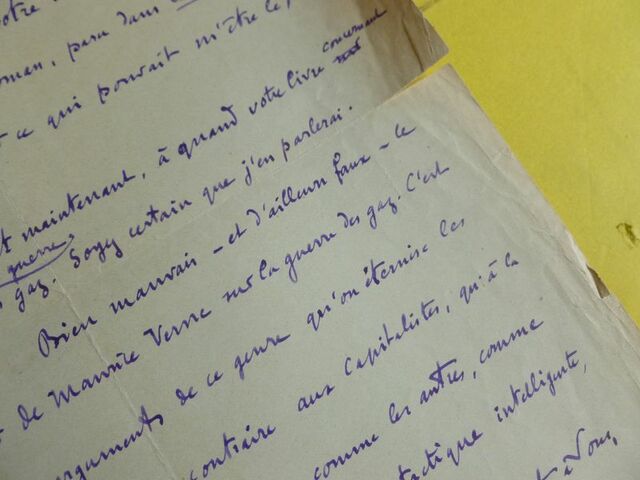 oman, paru dans
ce qui pouvait m'être le,
maintenant, à quand votre livre concernant
guerre,
gaz. Soyez certain que j'en parlerai.
Bien mauvais - et d'ailleurs faux - le
de Maurice Verne sur la guerre des gaz. C'est
arguments de ce genre qu'on éternise les
contraire aux Capitalistes, qui à la
comme les autres, comme
tactique intelligente,
à Vous,